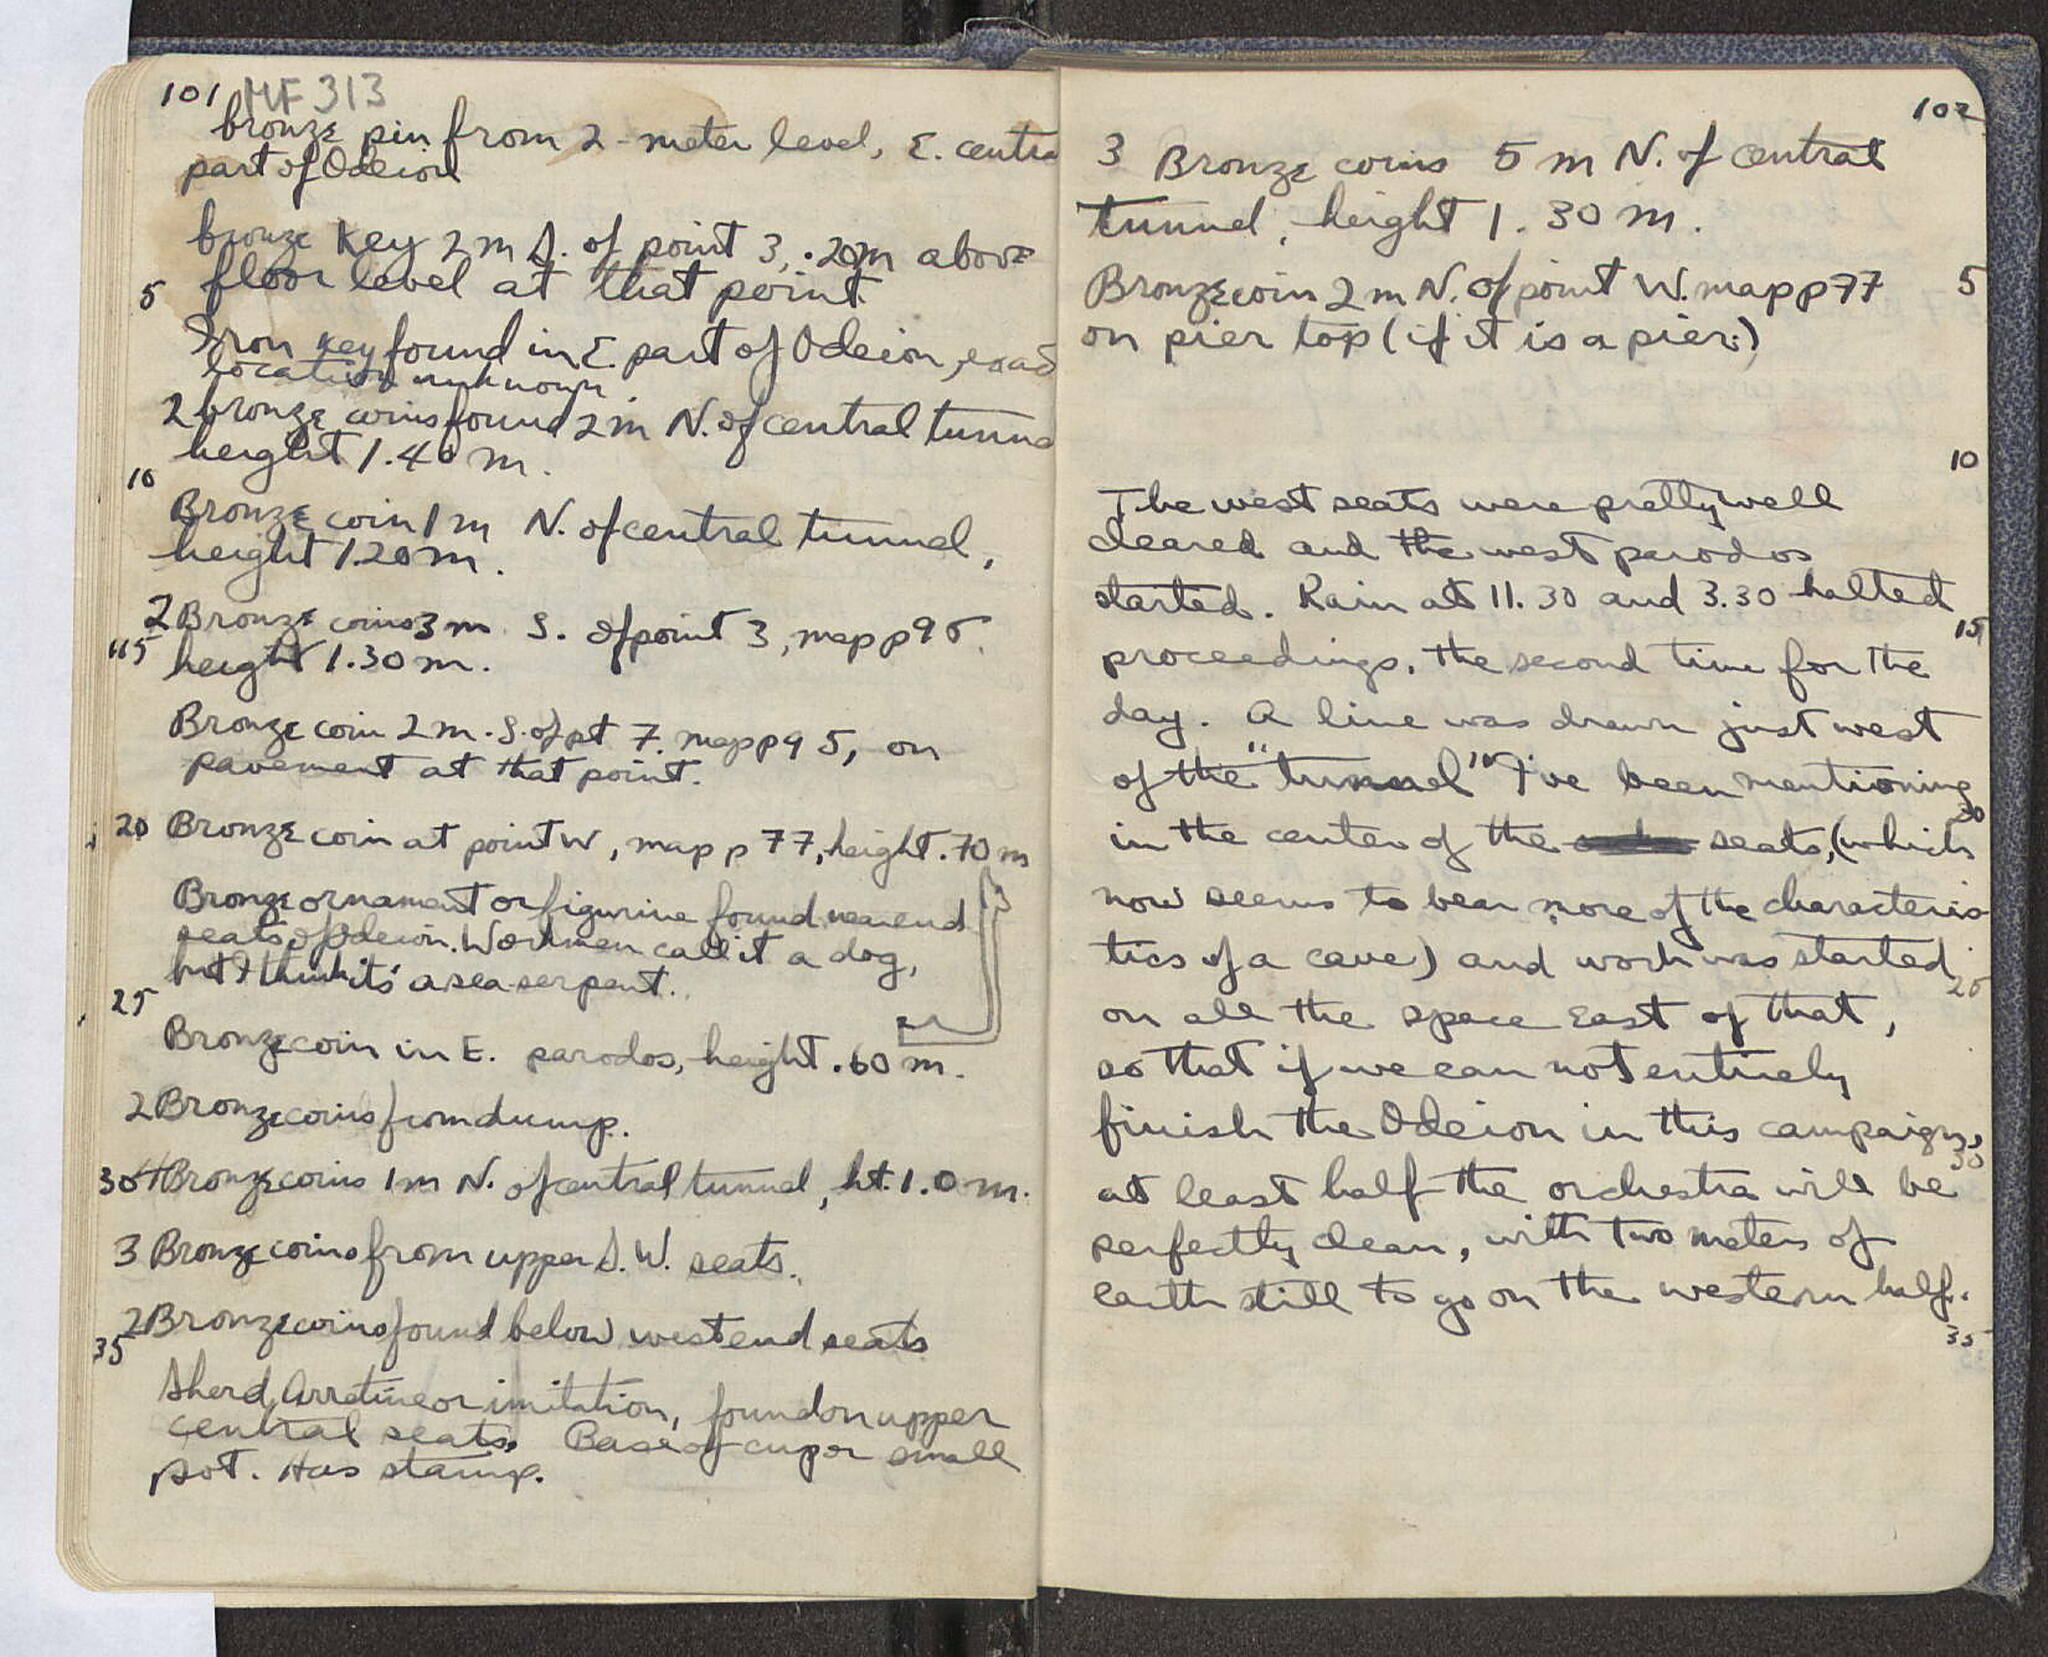 101 MF 313
bronze pin from 2-meter level, E. centra
part of Odeion
bronze key 2 m S. of point 3, .20m above
floor level at that point.
5
Iron key found in E. part of Odeion, exact
location unknown.
2 bronze coins found 2 m N. of central tunne
height 1.40 m.
10
Bronze coin 1 m N. of central tunnel,
height 1.20 m.
2 Bronze coins 3 m S. of point 3, map p 95.
15 height 1.30 m.
Bronze coin 2 m. S. of pt 7. map p 95, on
pavement at that point.
20 Bronze coin at point W, map p 77, height .70 m
Bronze ornament or figurine found near end
seats of Odeion. Workmen call it a dog,
but I think its a sea serpent.
25
Bronze coin in E. parodos, height .60 m.
2 Bronze coins from dump.
30 4 Bronze coins 1 m N. of central tunnel, ht. 1.0 m.
3 Bronze coins from upper S. W. seats.
2 Bronze coins found below west end seats
35
Sherd, Arretine or imitation, found on upper
central seats. Base of cup or small
pot. Has stamp.
102
3 Bronze coins 5 m N. of central
tunnel, height 1.30 m.
Bronze coin 2 m N. of point W. map p 77 5
on pier top (if it is a pier.)
10
The west seats were pretty well
cleared and the west parodos
started. Rain at 11.30 and 3.30 halted
15
proceedings, the second time for the
day. A line was drawn just west
of the "tunnel" I've been mentioning
20
in the center of the seats, (which
now seems to bear more of the characteris-
tics of a cave) and work was started
25
on all the space East of that,
so that if we can not entirely
finish the Odeion in this campaign,
30
at least half the orchestra will be
perfectly clean, with two meters of
earth still to go on the western half.
35